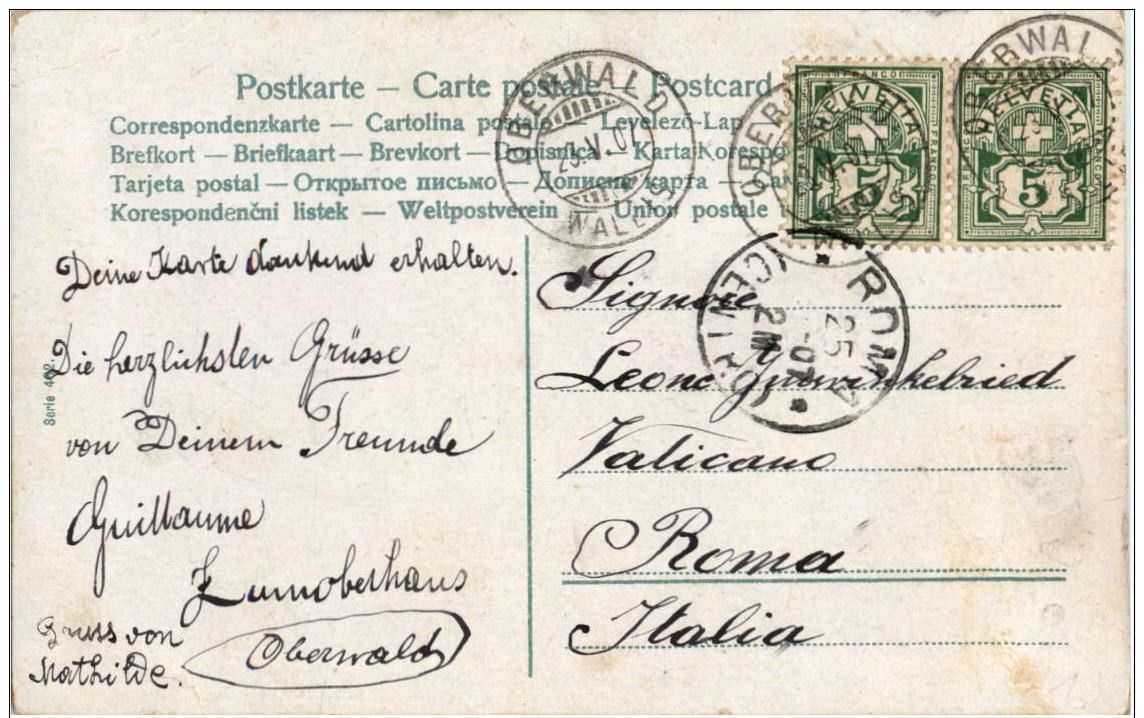 Postkarte — Carte postale — Postcard
Correspondenzkarte — Cartolina postale — Levelező-Lap
Brefkort — Briefkaart — Brevkort — Dopisnica — Karta Korespo
Tarjeta postal — Открытое письмо — Дописна карта —
Korespondenční listek — Weltpostverein — Union postale
OBERWALD
23.V.07
WALLIS
OBERWALD
FRANCO
HELVETIA
5
OBERWALD
FRANCO
HELVETIA
5
ROMA
25
-07
2M
CENTRO
Deine Karte dankend erhalten.
Die herzlichsten Grüsse
von Deinem Freunde
Guillaume
Zumoberhaus
Oberwald
Gruss von
Mathilde.
Serie 402.
Signore
Leone Imwinkelried
Vaticano
Roma
Italia